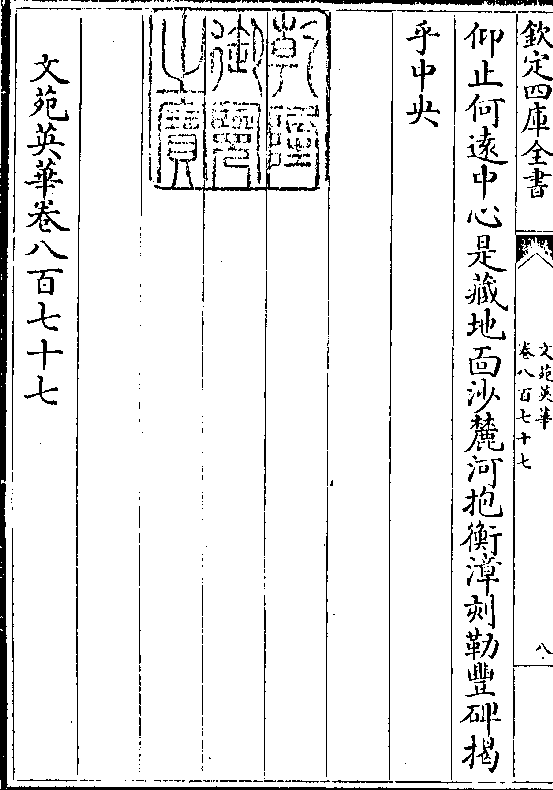 欽定四庫全書
文苑英華
卷八百七十七
八
仰止何遠中心是藏地面沙麓河抱衡漳刻勒豐碑揭
乎中央
乾隆
御覽
之寶
文苑英華卷八百七十七